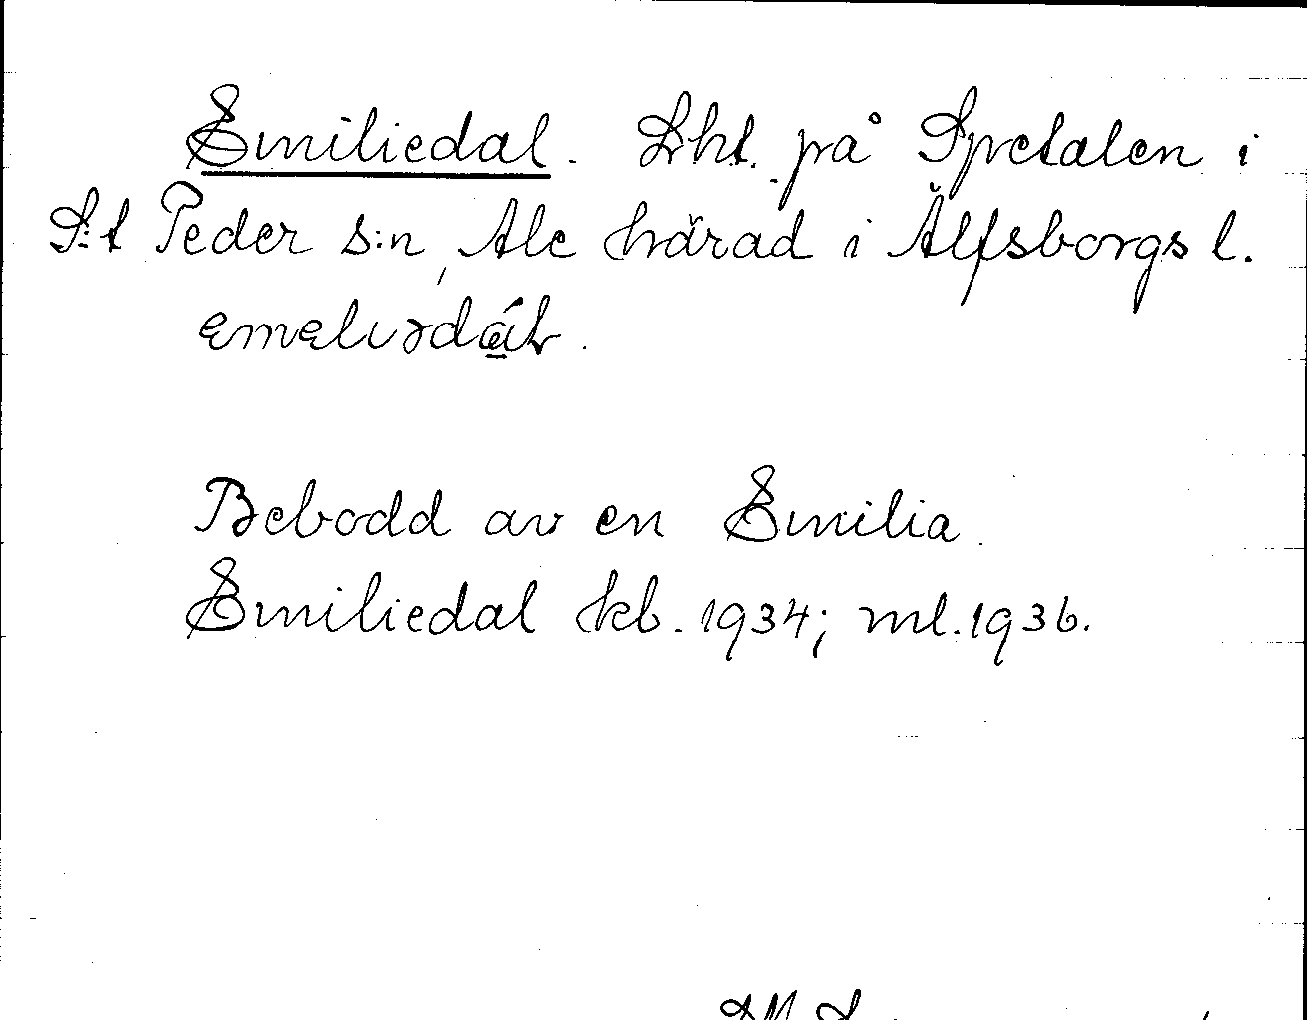 Emiliedal. Lht. på Spetalen i
S:t Peder s:n, Ale härad i Älfsborgs l.
Bebodd av en Emilia.
Emiliedal kb. 1934; ml. 1936.